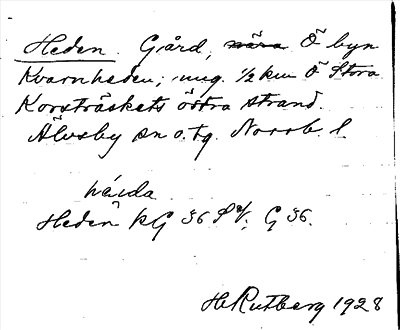 Heden. Gård, nära Ö byn
Kvarnheden; ung. 1/2 km Ö Stora
Korsträskets östra strand.
Älvsby sn o. tg. Norrb. l.
Heden KG 36 G 36.
H. Rutberg 1928